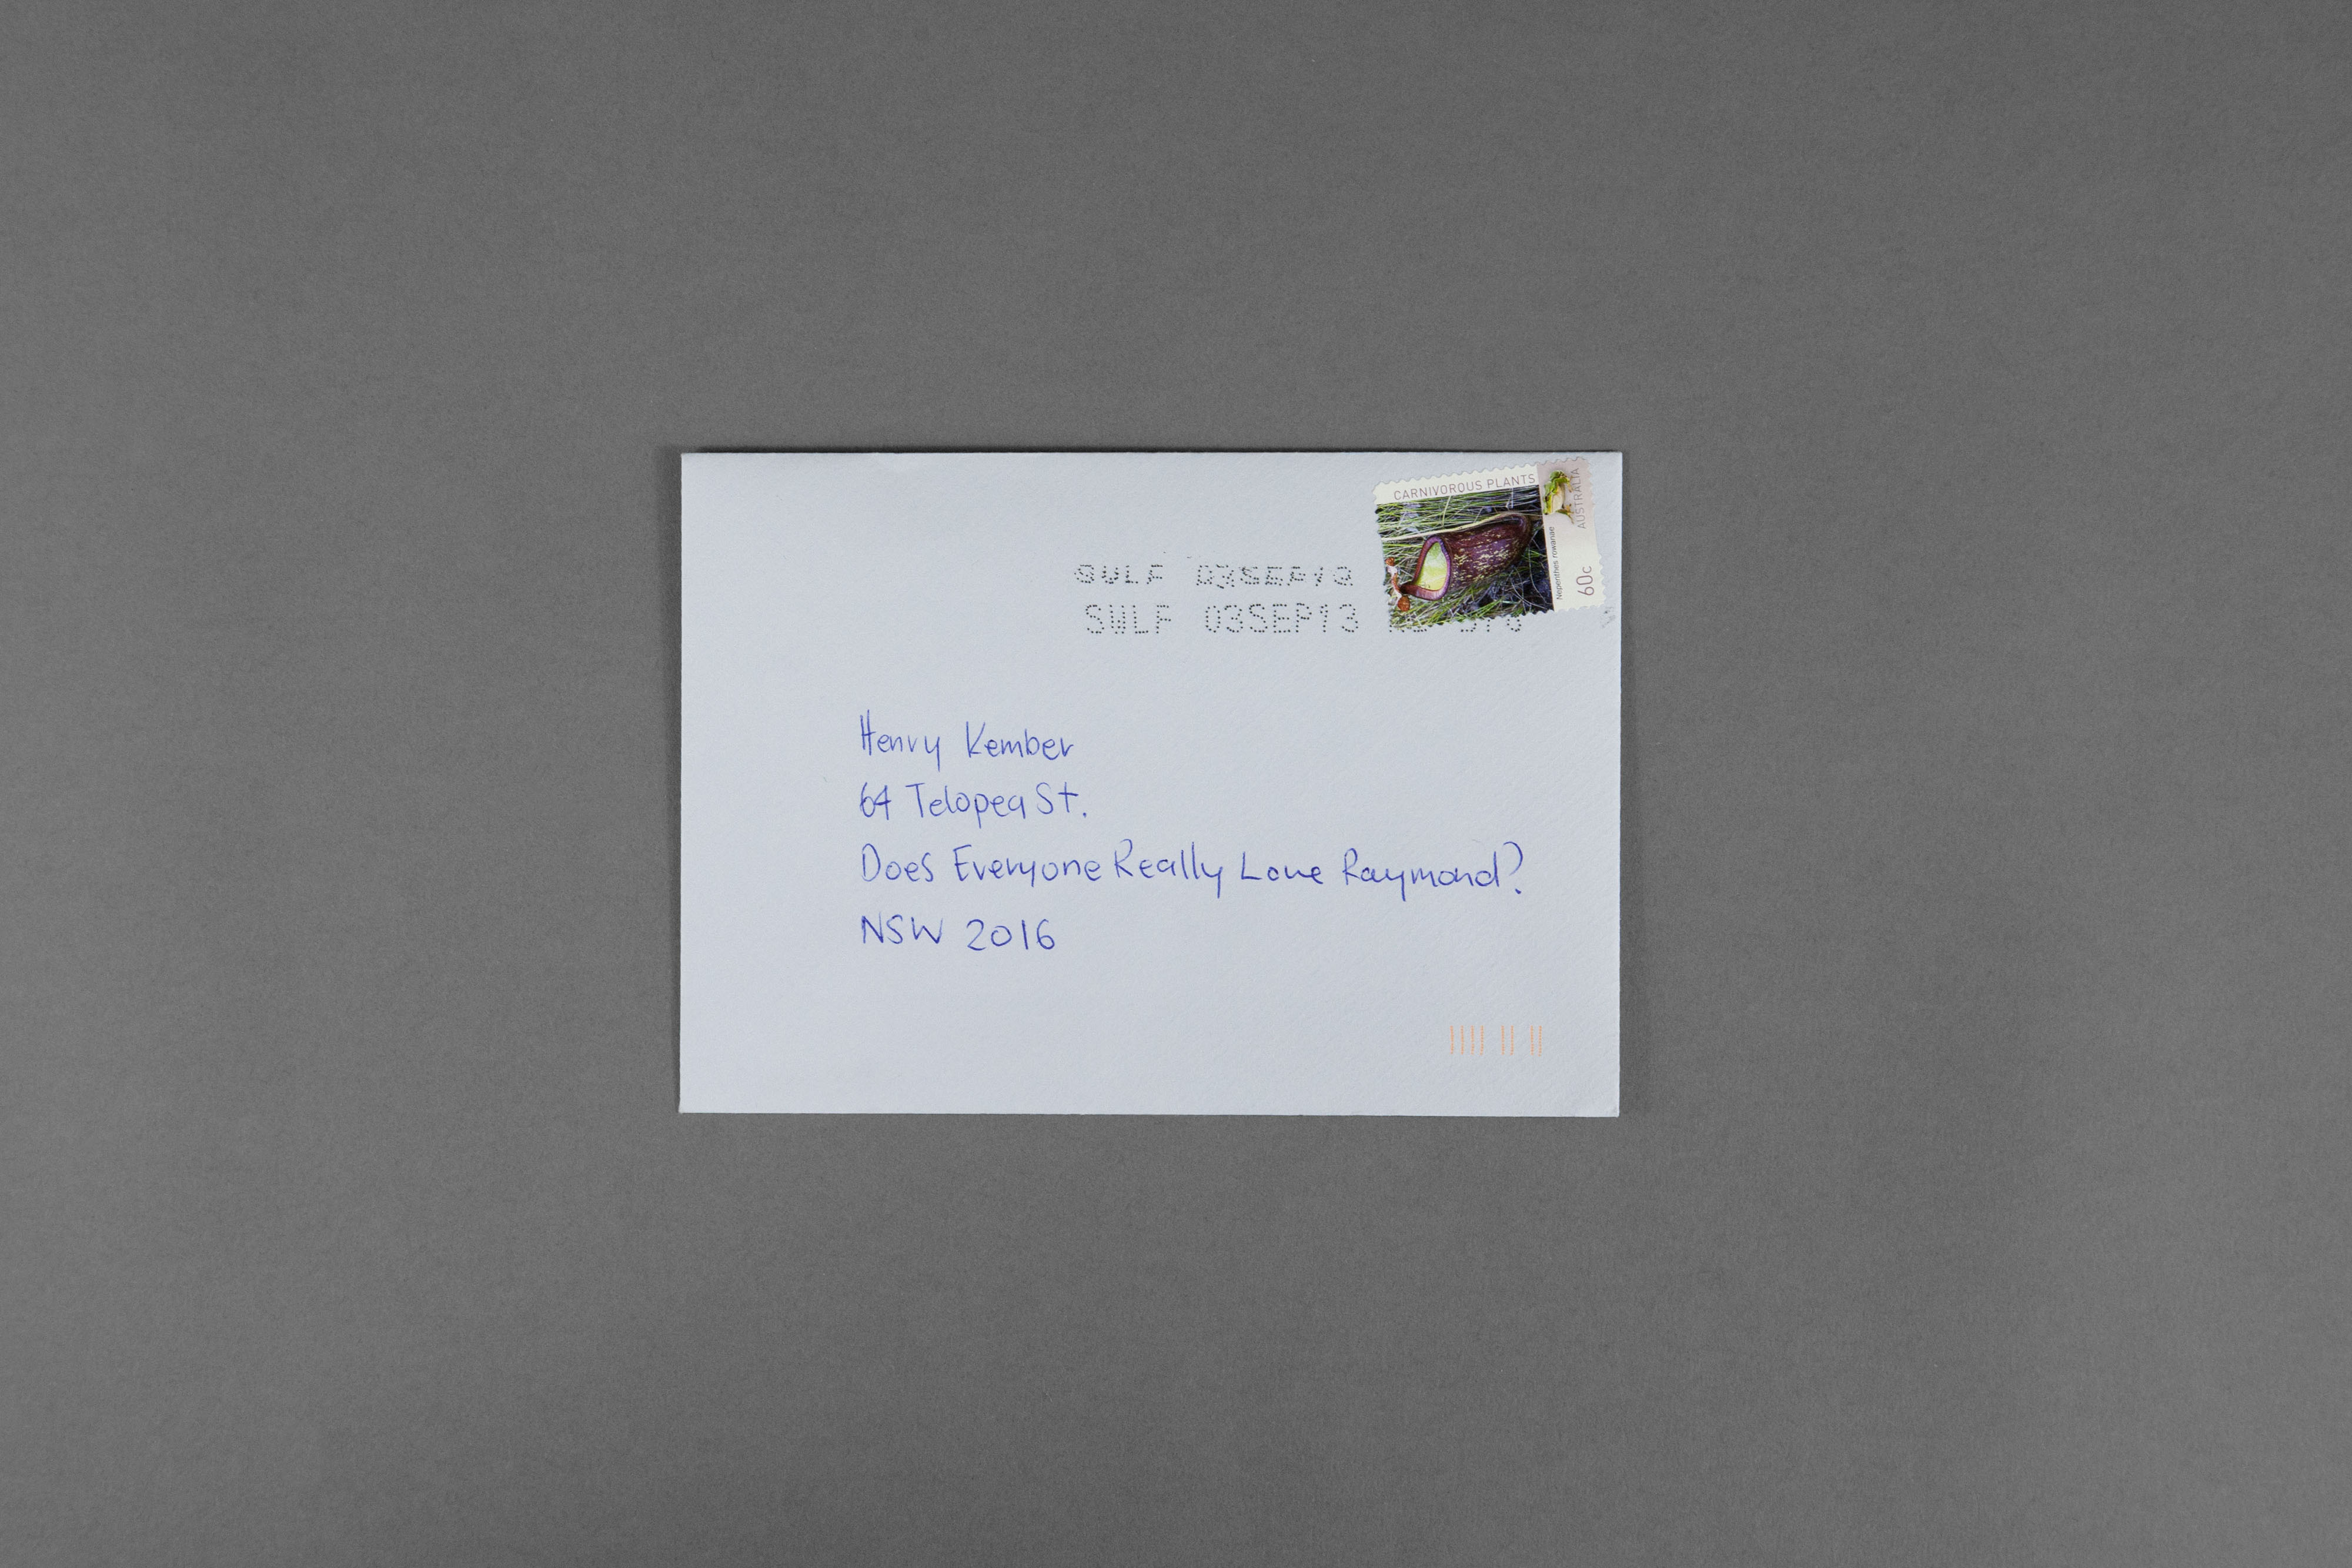 CARNIVOROUS PLANTS
AUSTRALIA
Nepenthes rowanae
60c
SWLF 03SEP13
SWLF 03SEP13
Henry Kember
64 Telopea St.
Does Everyone Really Love Raymond?
NSW 2016